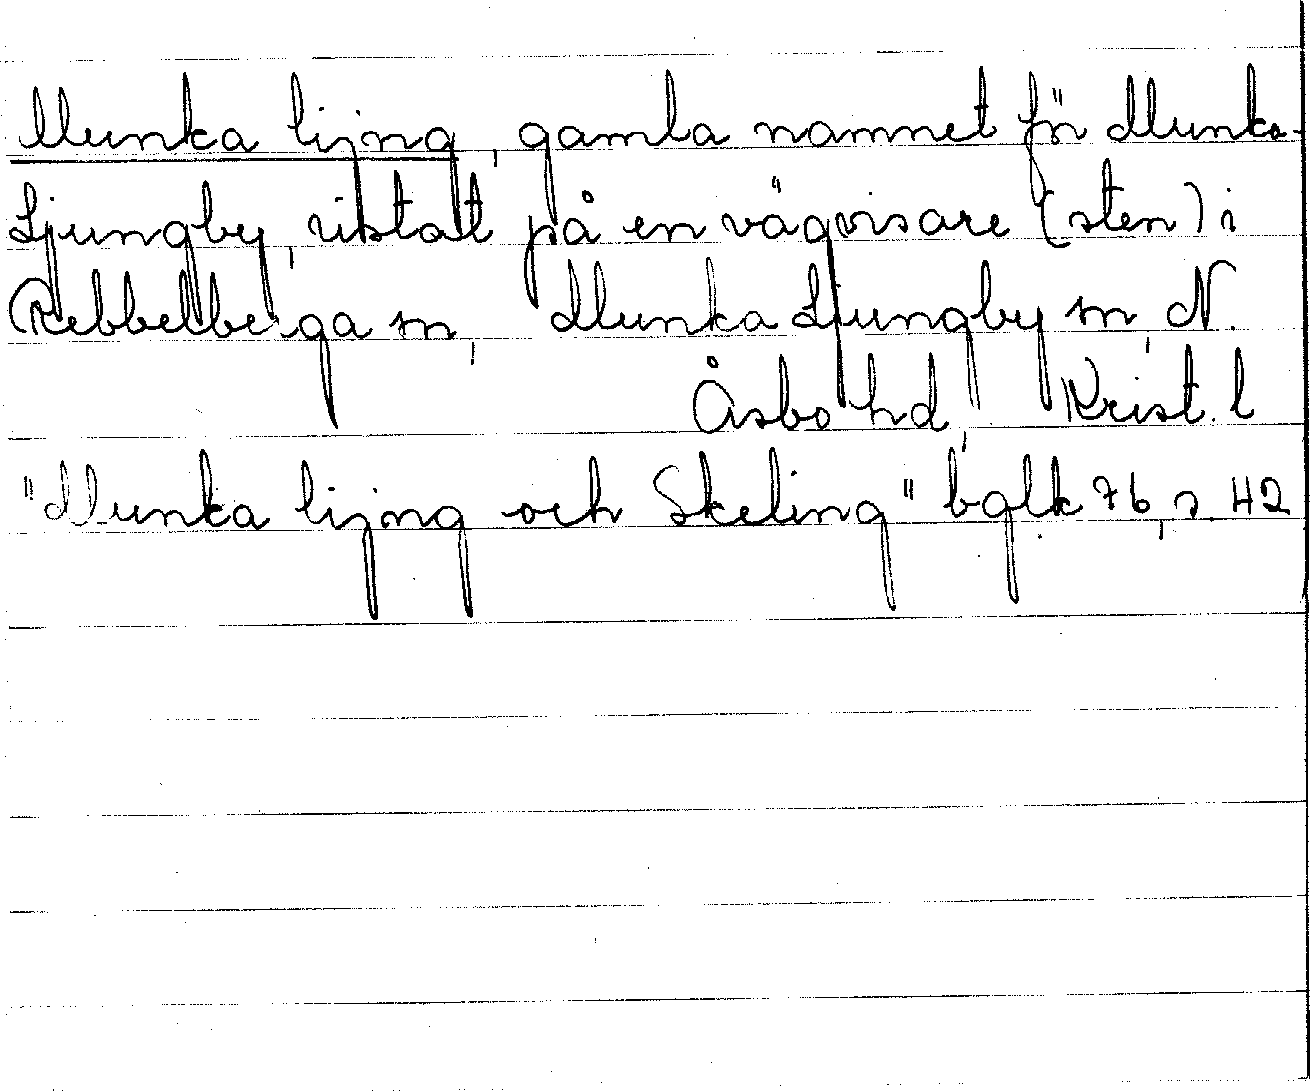 Munka lijng, gamla namnet för Munka-
Ljungby, ristat på en vägvisare (sten) i
Rebbelberga sn, Munka Ljungby sn, N.
Åsbo hd, Krist. l
"Munka lijng och Skeling" bglk 76, s. 42